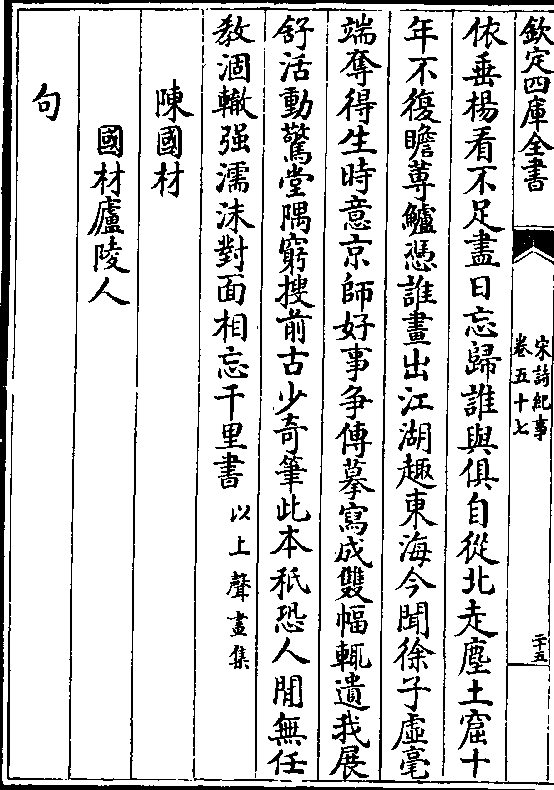 欽定四庫全書
宋詩紀事
卷五十七
二十五
依垂楊看不足盡日忘歸誰與俱自從北走塵土窟十
年不復瞻蓴鱸憑誰畫出江湖趣東海今聞徐子虛毫
端奪得生時意京師好事争傳摹寫成雙幅輒遺我展
舒活動驚堂隅窮搜前古少奇筆此本秖恐人間無任
敎涸轍强濡沫對面相忘千里書以上聲畫集
陳國材
國材廬陵人
句